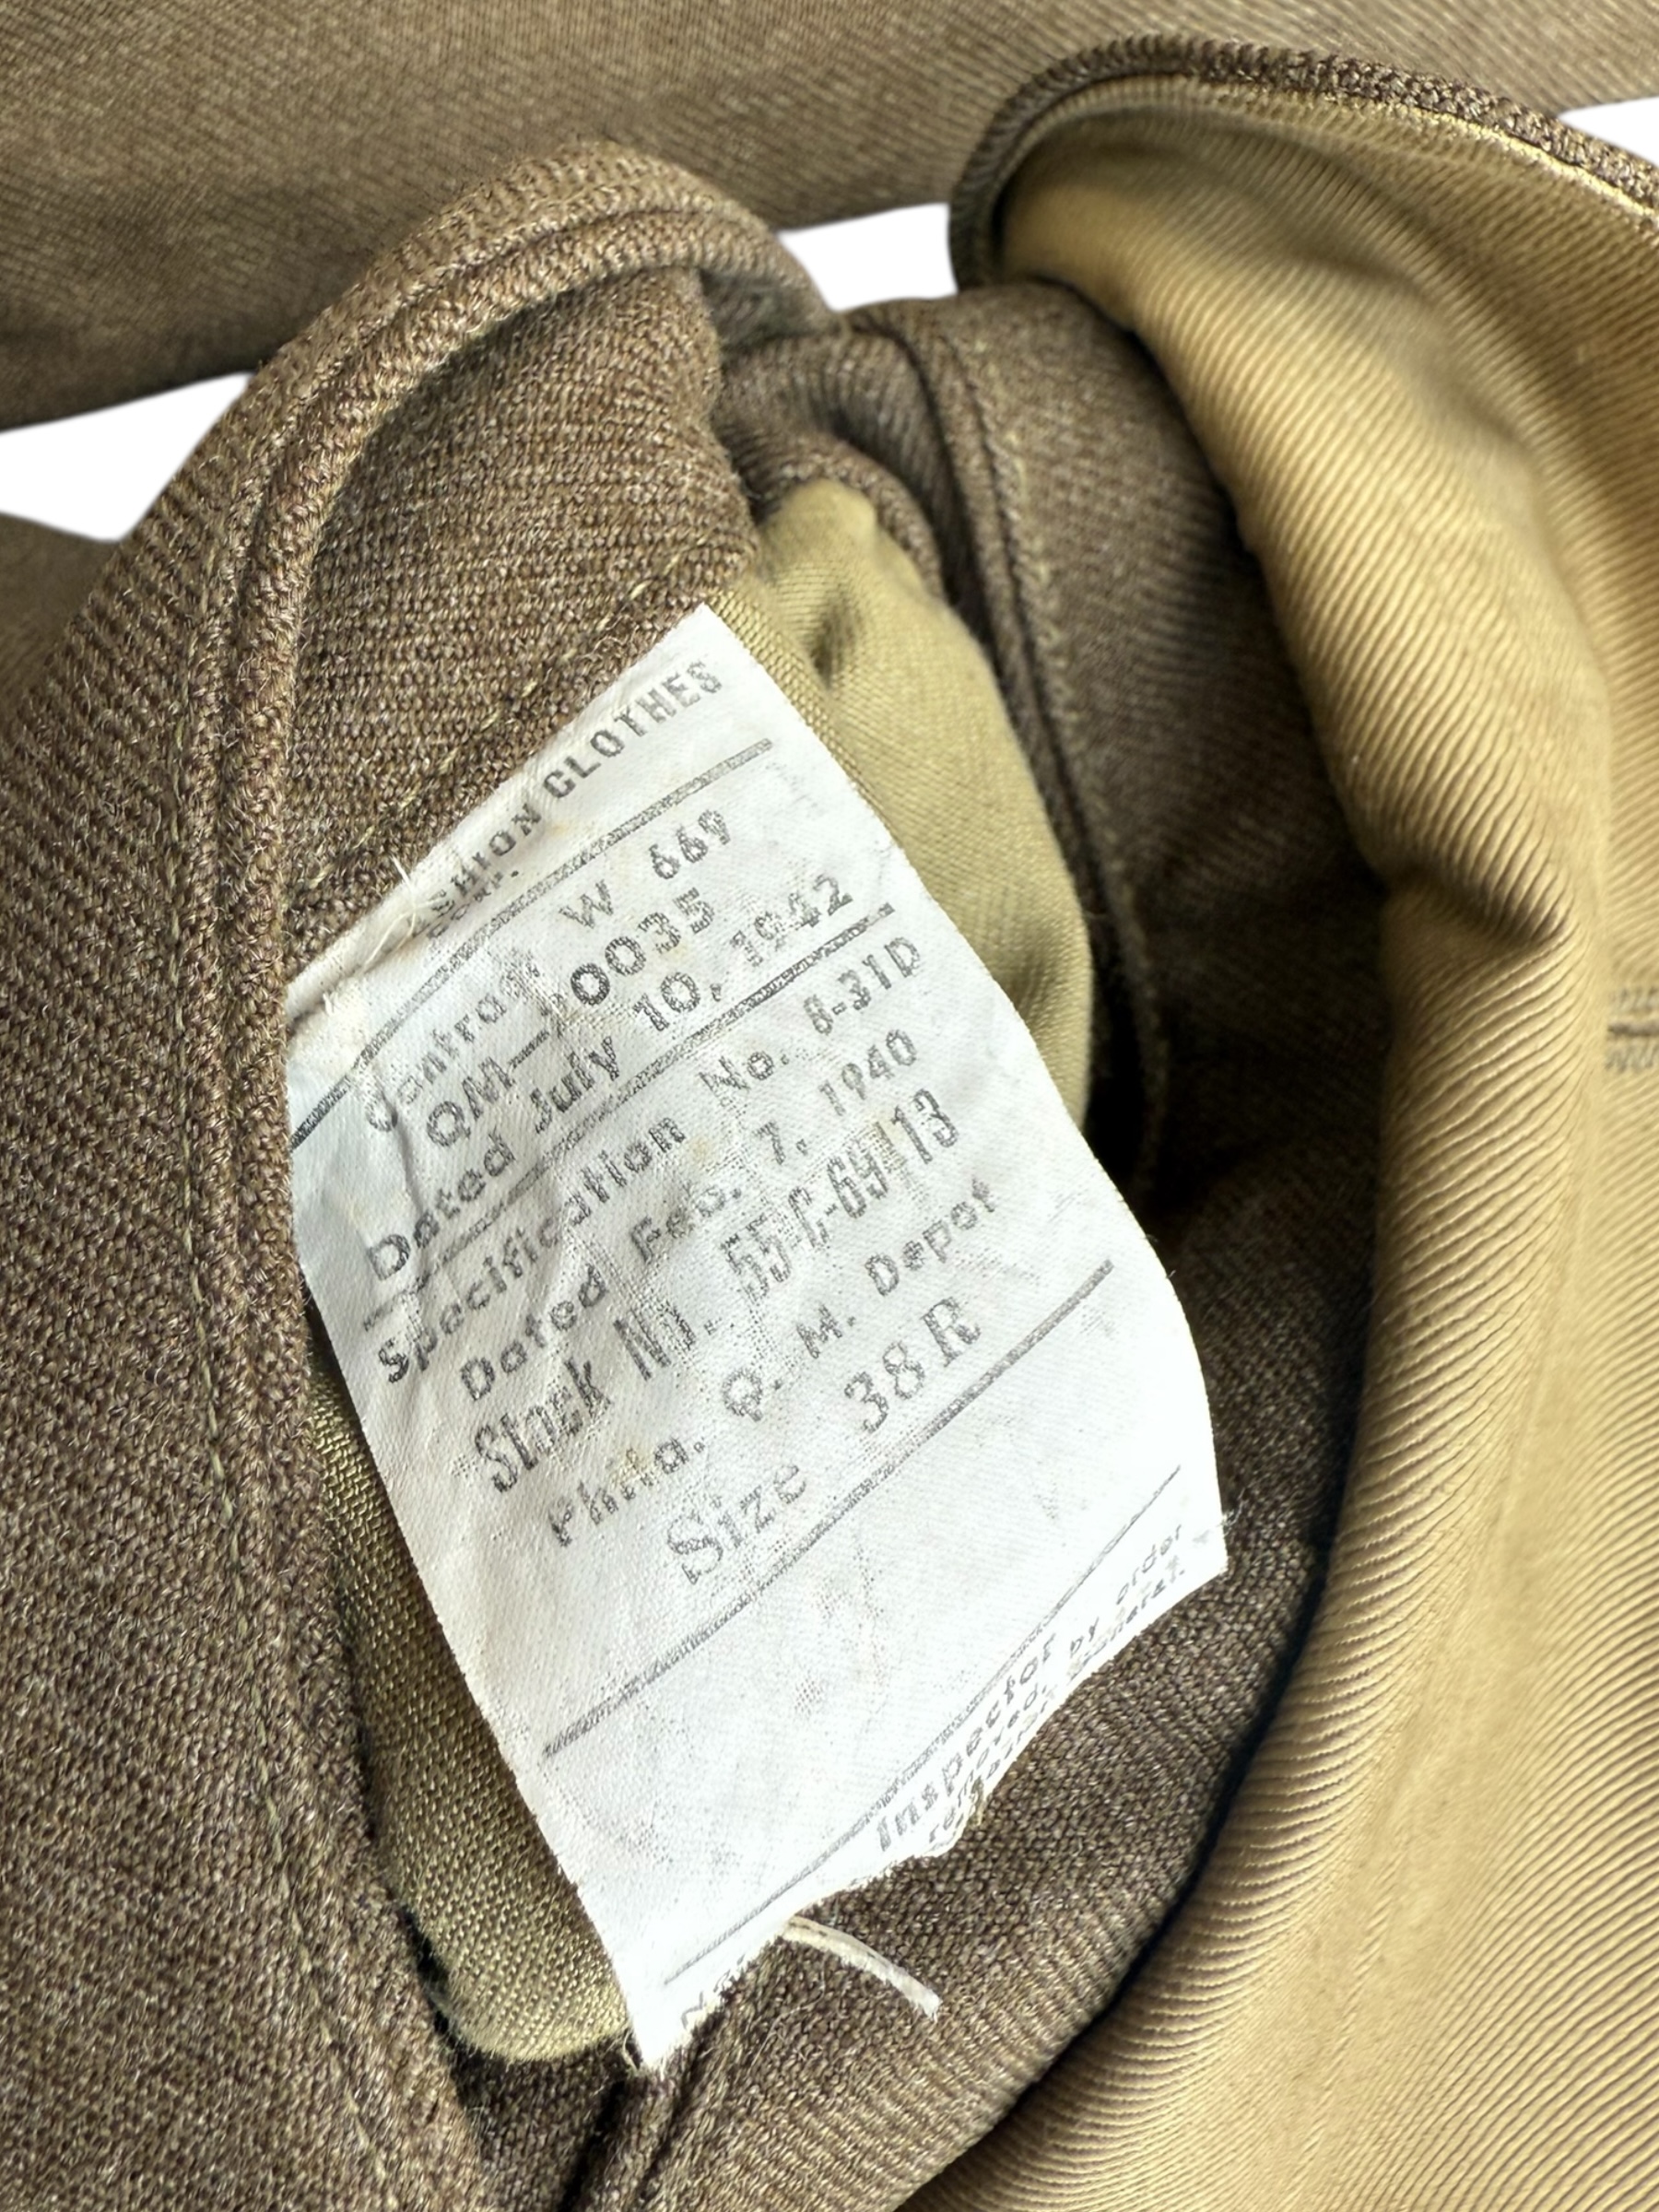 SHION CLOTHES
CORP.
Contract W 669
QM-20035
Dated July 10, 1942
Specification No. 8-31D
Dated Feb. 7, 1940
Stock No. 55-C-69113
Phila. Q. M. Depot
Size 38R
Inspector
by order
General.